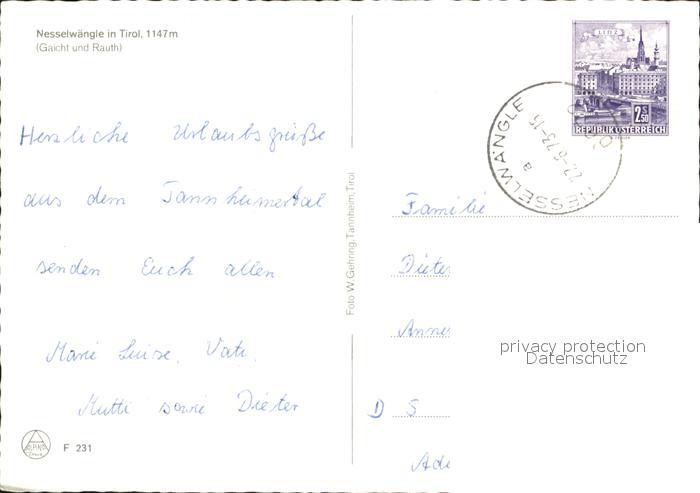 Nesselwängle in Tirol, 1147m
(Gaicht und Rauth)
LINZ
2.50
REPUBLIK ÖSTERREICH
NESSELWÄNGLE
22.-6.73-15
a
NESSELWÄNGLE
Herzliche Urlaubsgrüße
aus dem Tannheimertal
senden Euch allen
Marie Luise, Vati,
Mutti sowie Dieter
Foto W. Gehring, Tannheim, Tirol
Familie
Dieter
Anne
D S
Ade
privacy protection
Datenschutz
F 231